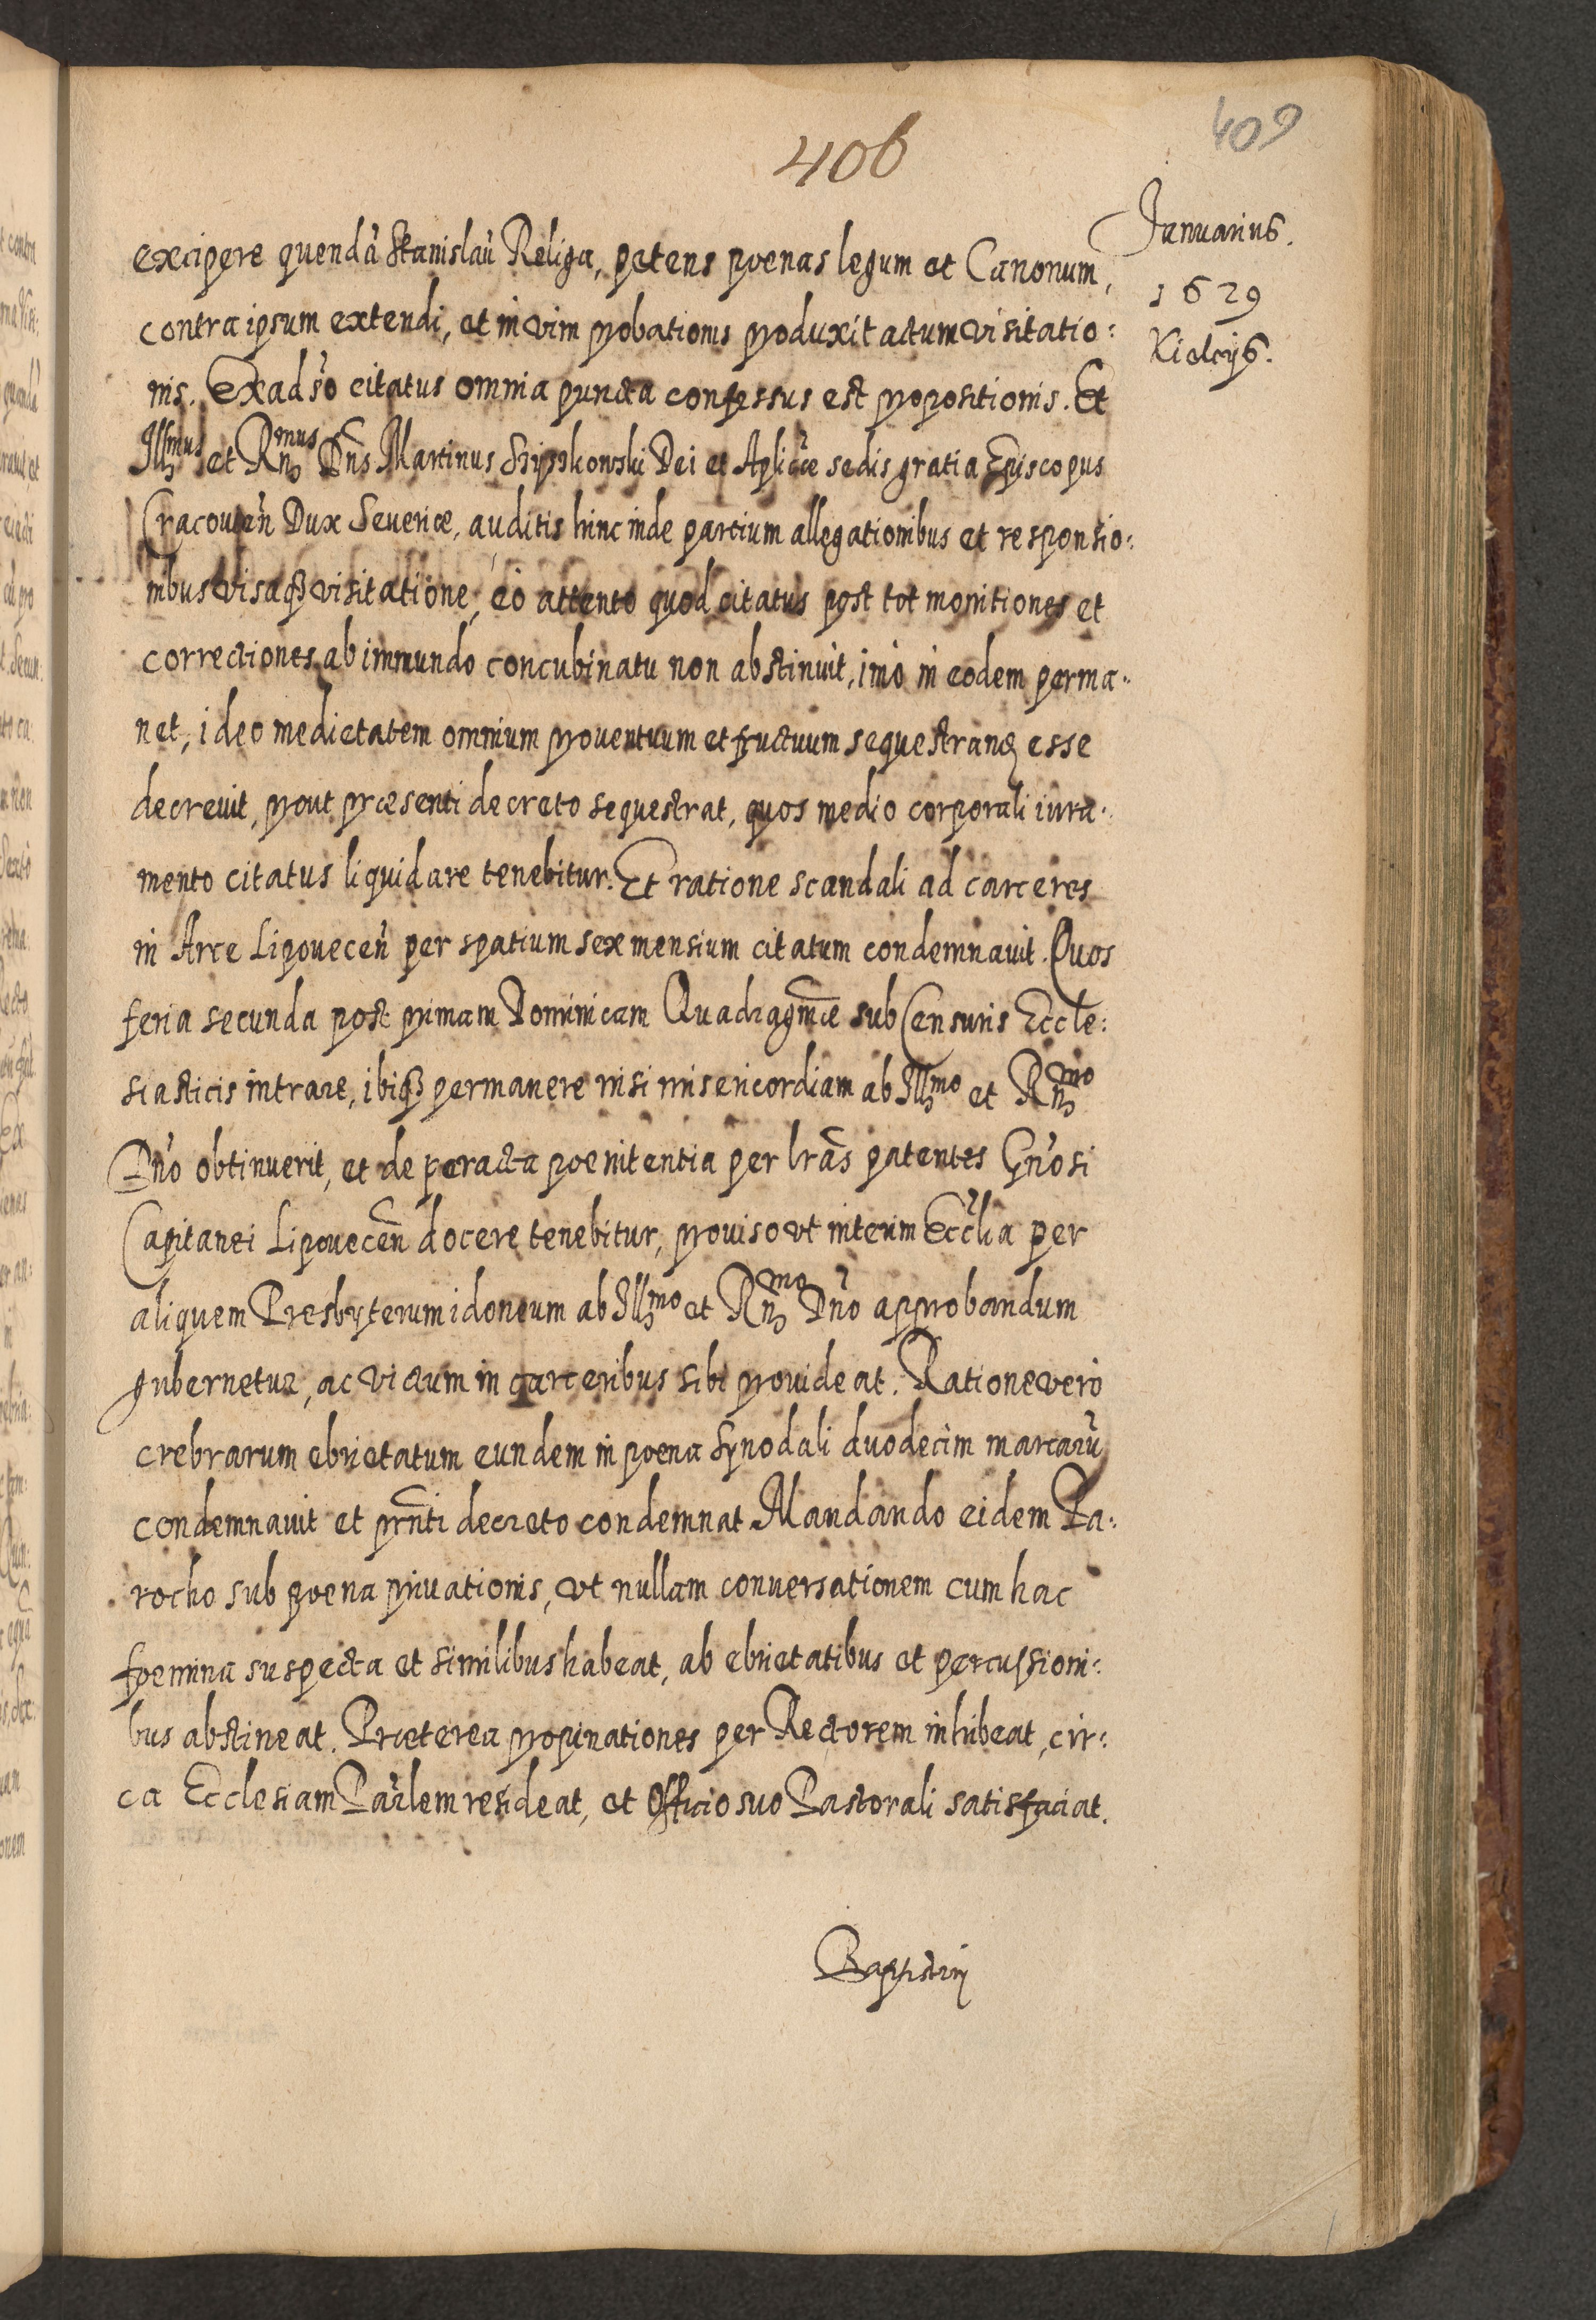 406
409
Januarius.
1629
Kielcijs.
excipere quendã Stanislaũ Religa, petens poenas legum et Canonum,
contra ipsum extendi, et in vim probationis produxit actum visitatio:
nis. Ex adṽo citatus omnia puncta confessus est propositionis. Et
Illmus et Rñmus Dñs Martinus Szyszkowski Dei et Aplicæ sedis gratia Episcopus
Cracouieñ Dux Seueriæ, auditis hinc inde partium allegationibus et responsio:
nibus visaq3 visitatione, eo attento quod citatus post tot monitiones et
correctiones ab immundo concubinatu non abstinuit, imò in eodem perma:
net, ideo medietatem omnium prouentuum et fructuum sequestrand esse
decreuit, prout præsenti decreto sequestrat, quos medio corporali iura:
mento citatus liquidare tenebitur. Et ratione scandali ad carceres
in Arce Lipoueceñ per spatium sex mensium citatum condemnauit. Quos
feria secunda post primam Dominicam Quadragmæ sub Censuris Eccle:
siasticis intrare, ibiq3 permanere nisi misericordiam ab Illmo et Rñmo
Dño obtinuerit, et de peracta poenitentia per lrãs patentes Gñosi
Capitanei Lipoueceñ docere tenebitur, prouiso vt interim Ecclia per
aliquem Presbyterum idoneum ab Illmo et Rñmo Dño approbandum
gubernetur, ac victum in carceribus sibi prouideat. Ratione verò
crebrarum ebrietatum eundem in poena synodali duodecim marcarũ
condemnauit et prñti decreto condemnat. Mandando eidem Pa:
rocho sub poena priuationis, vt nullam conuersationem cum hac
foemina suspecta et similibus habeat, ab ebrietatibus et percussioni:
bus abstineat. Præterea propinationes per Rectorem inhibeat, cir:
ca Ecclesiam Parlem resideat, et Officio suo Pastorali satisfaciat.